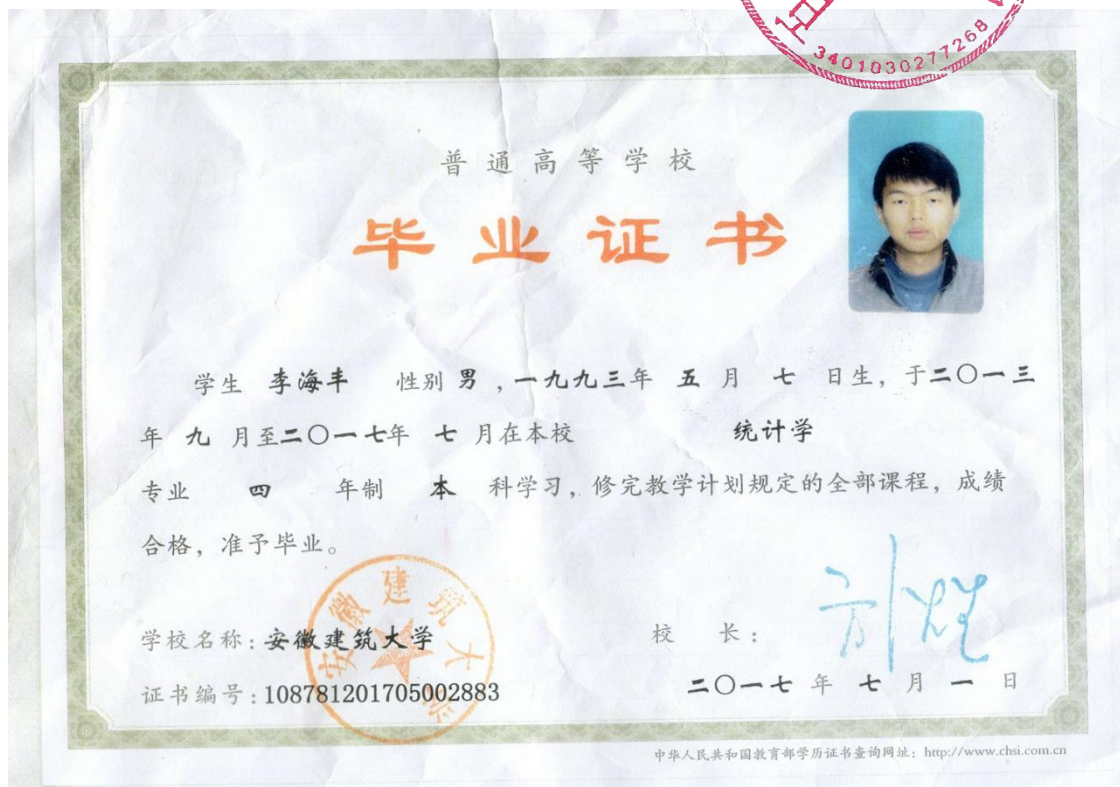 3401030277268
普通高等学校
毕业证书
学生 李海丰 性别 男 ，一九九三年 五 月 七 日生，于二〇一三
年 九 月至二〇一七年 七 月在本校 统计学
专业 四 年制 本 科学习，修完教学计划规定的全部课程，成绩
合格，准予毕业。
安徽建筑大学
学校名称：安徽建筑大学 校 长：
证书编号：108781201705002883 二〇一七 年 七 月 一 日
中华人民共和国教育部学历证书查询网址：http://www.chsi.com.cn